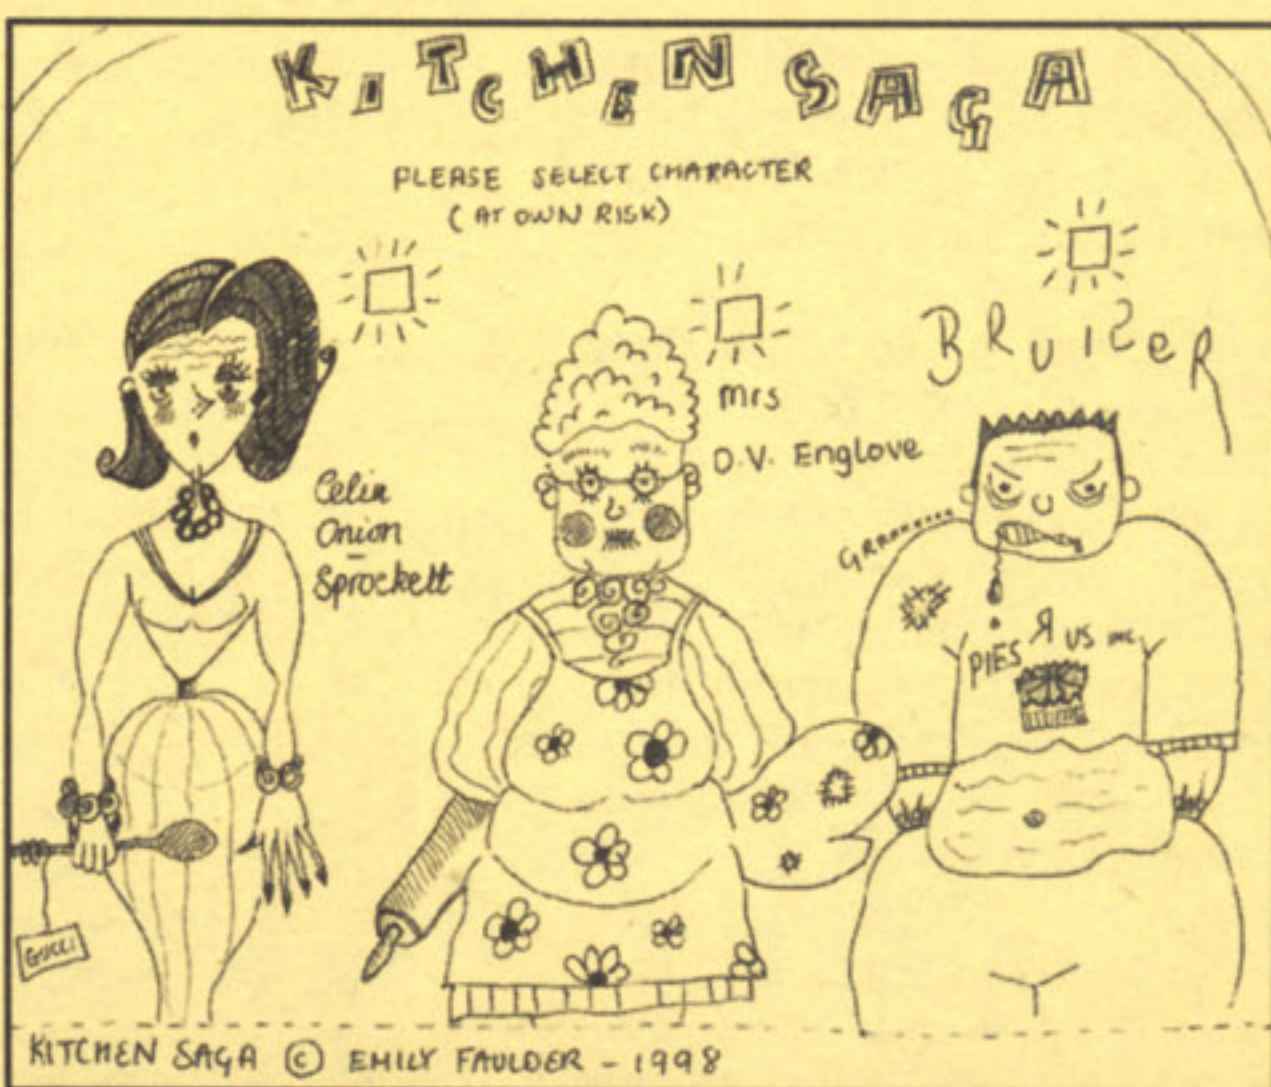 KITCHEN SAGA
PLEASE SELECT CHARACTER
(AT OWN RISK)
Celia
Onion
-
Sprockett
GUCCI
Mrs
D.V. Englove
BRUISER
Grrrrrrr.....
PIES Я US INC
KITCHEN SAGA © EMILY FAULDER - 1998